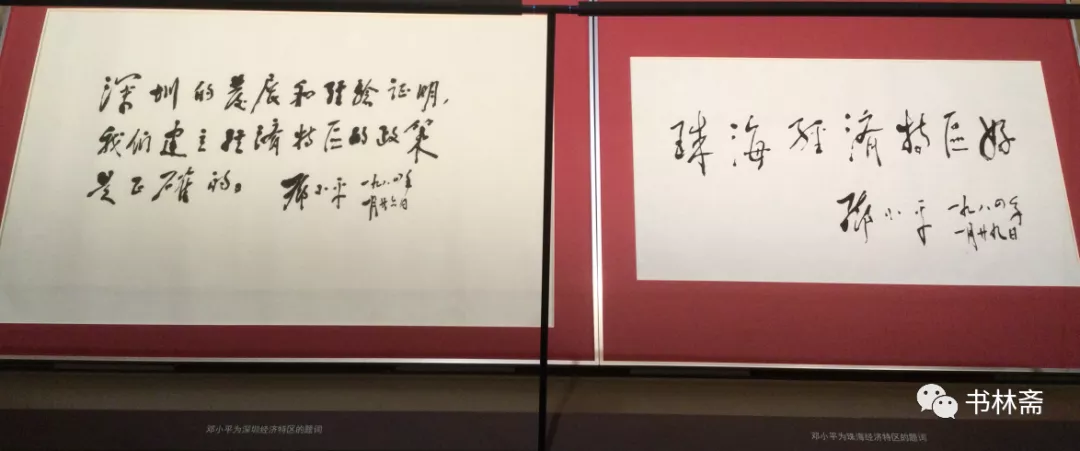 深圳的发展和经验证明，
我们建立经济特区的政策
是正確的。
邓小平
一九八四年
一月廿六日
邓小平为深圳经济特区的题词
珠海经济特区好
邓小平
一九八四年
一月廿九日
邓小平为珠海经济特区的题词
书林斋